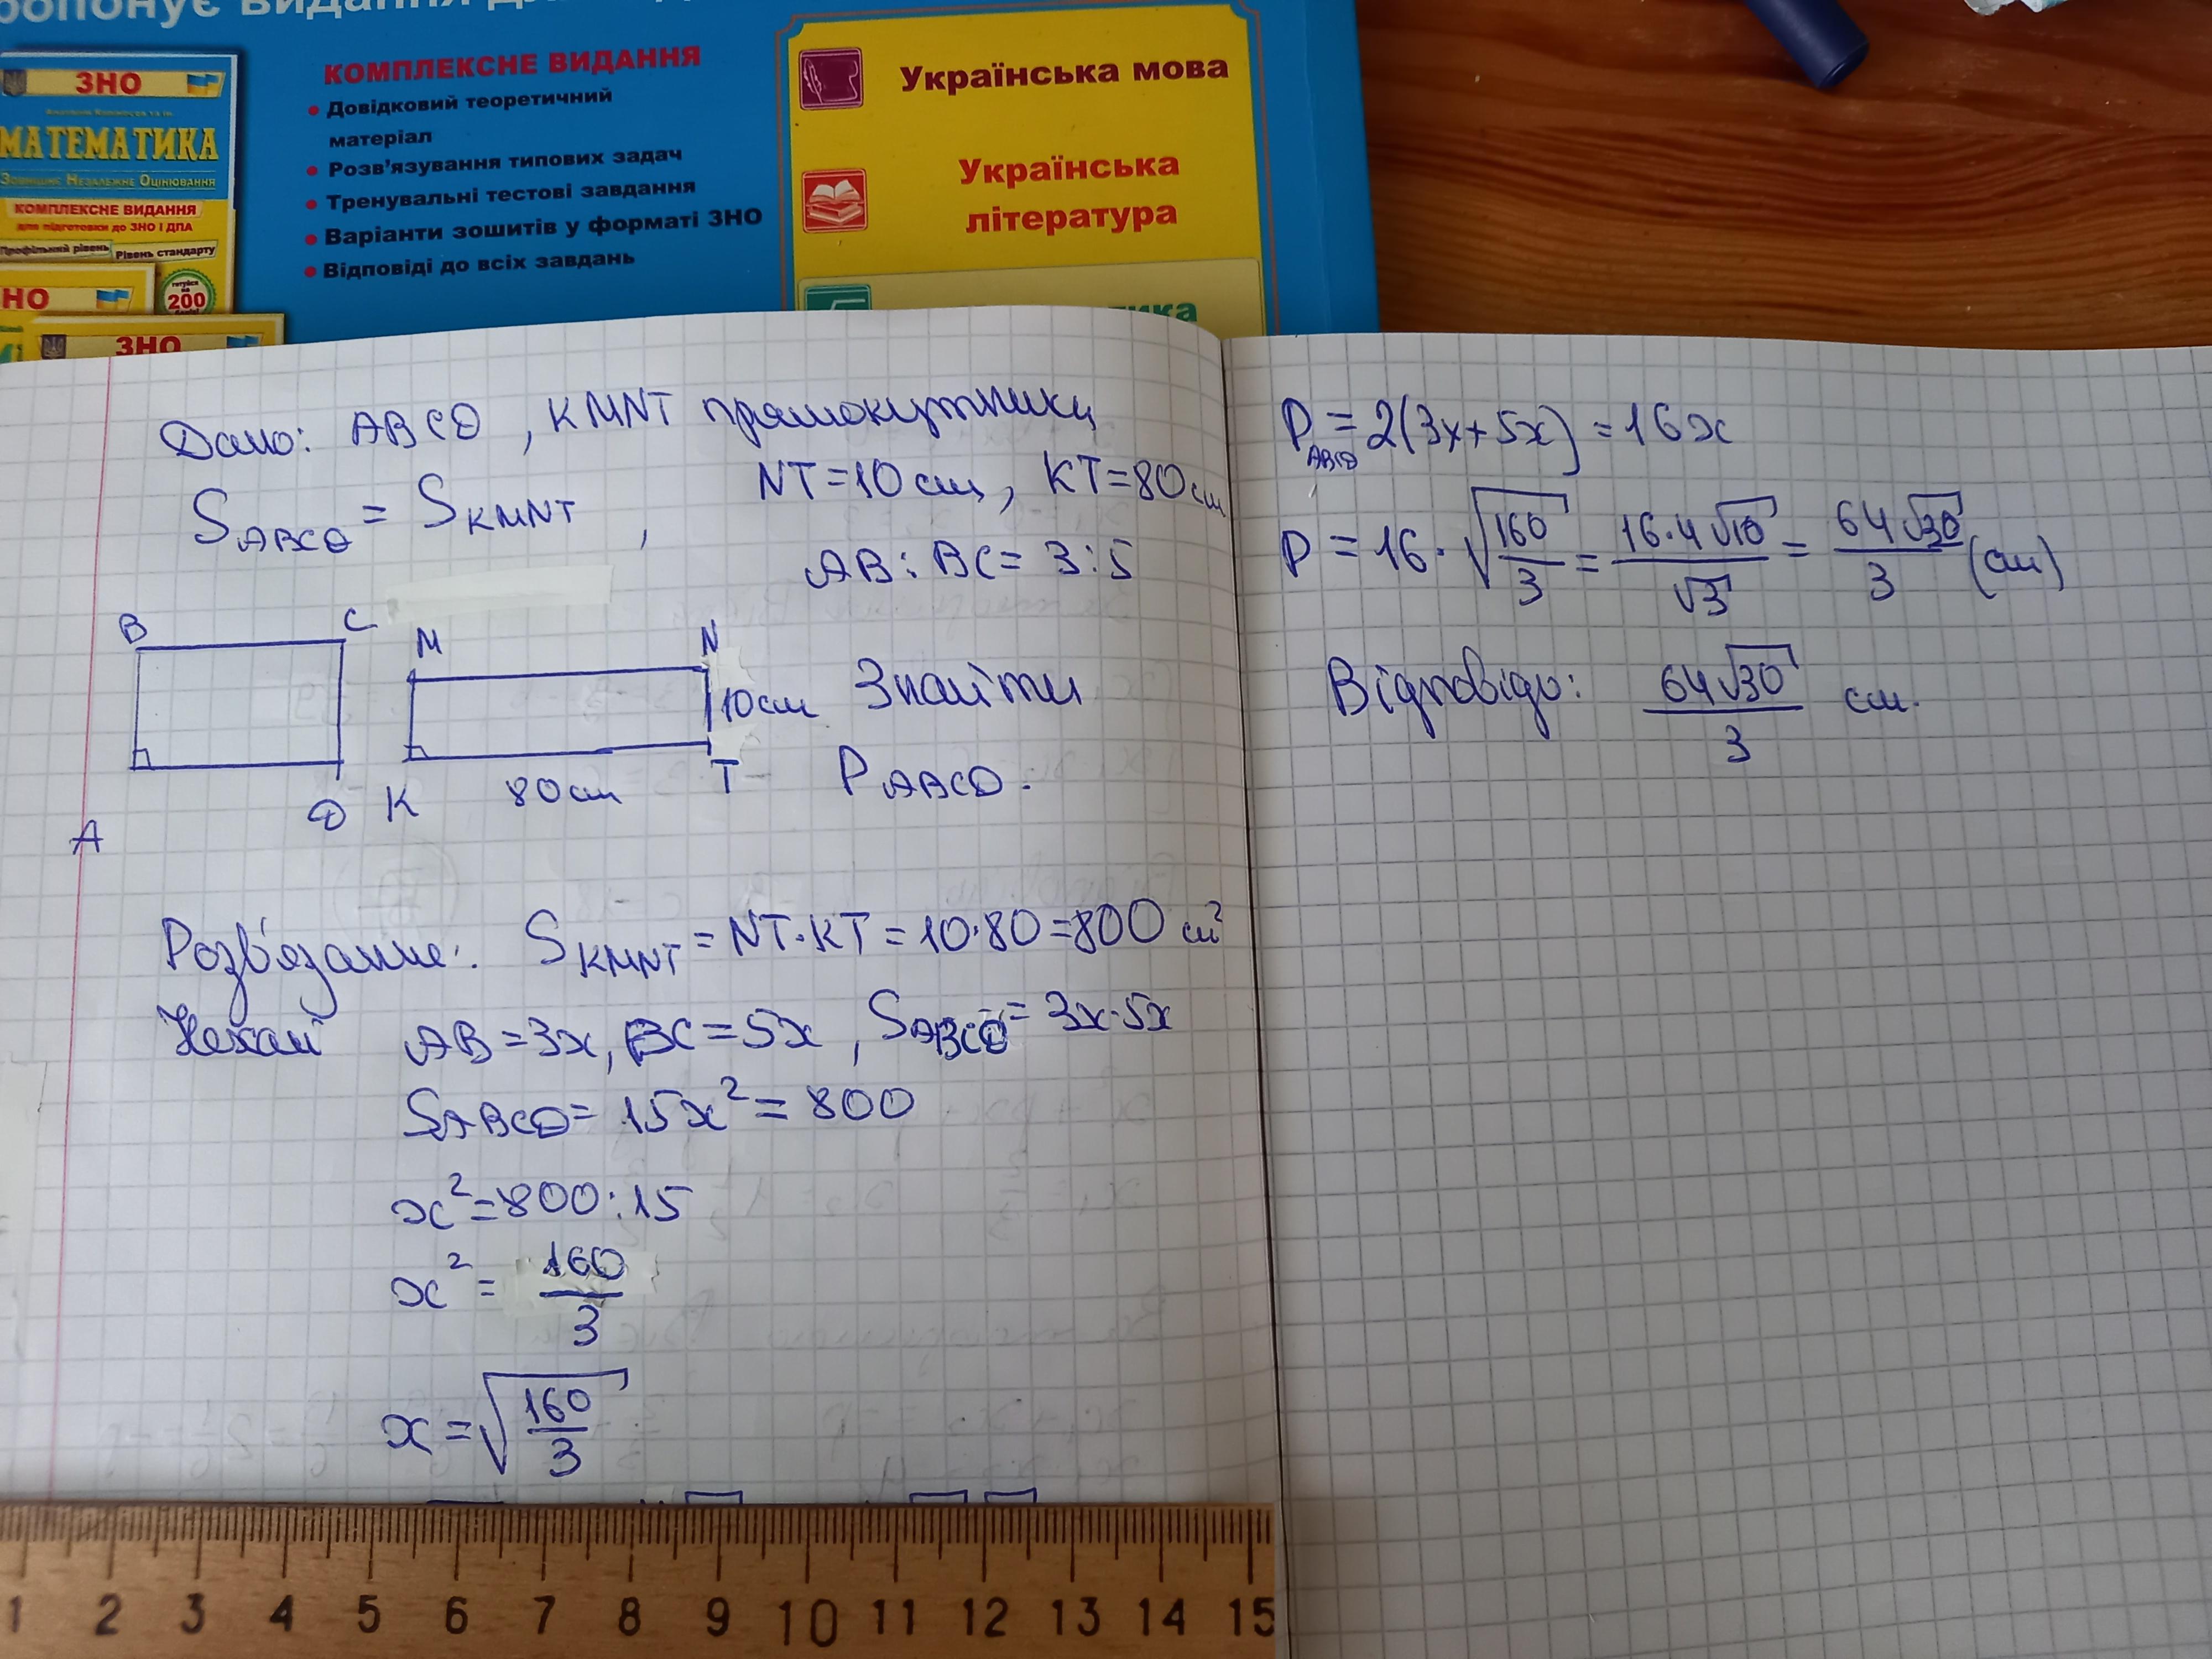 опонує видання дл
ЗНО
МАТЕМАТИКА
Зовнішнє Незалежне Оцінювання
КОМПЛЕКСНЕ ВИДАННЯ
для підготовки до ЗНО І ДПА
Профільний рівень
Рівень стандарту
НО
200
ЗНО
КОМПЛЕКСНЕ ВИДАННЯ
• Довідковий теоретичний
матеріал
• Розв'язування типових задач
• Тренувальні тестові завдання
• Варіанти зошитів у форматі ЗНО
• Відповіді до всіх завдань
Українська мова
Українська
література
тика
Дано: ABCD, KMNT прямокутники
S_ABCD = S_KMNT, NT=10см, KT=80см
AB:BC=3:5
B C M N
10см Знайти
K 80см T P_ABCD.
A D
Розв'язання: S_KMNT = NT·KT = 10·80=800 см²
Нехай AB=3x, BC=5x, S_ABCD = 3x·5x
S_ABCD = 15x² = 800
x²=800:15
x² = 160/3
x = √(160/3)
P_ABCD = 2(3x+5x) = 16x
P = 16·√(160/3) = 16·4√10/√3 = 64√30/3 (см)
Відповідь: 64√30/3 см.
1 2 3 4 5 6 7 8 9 10 11 12 13 14 15